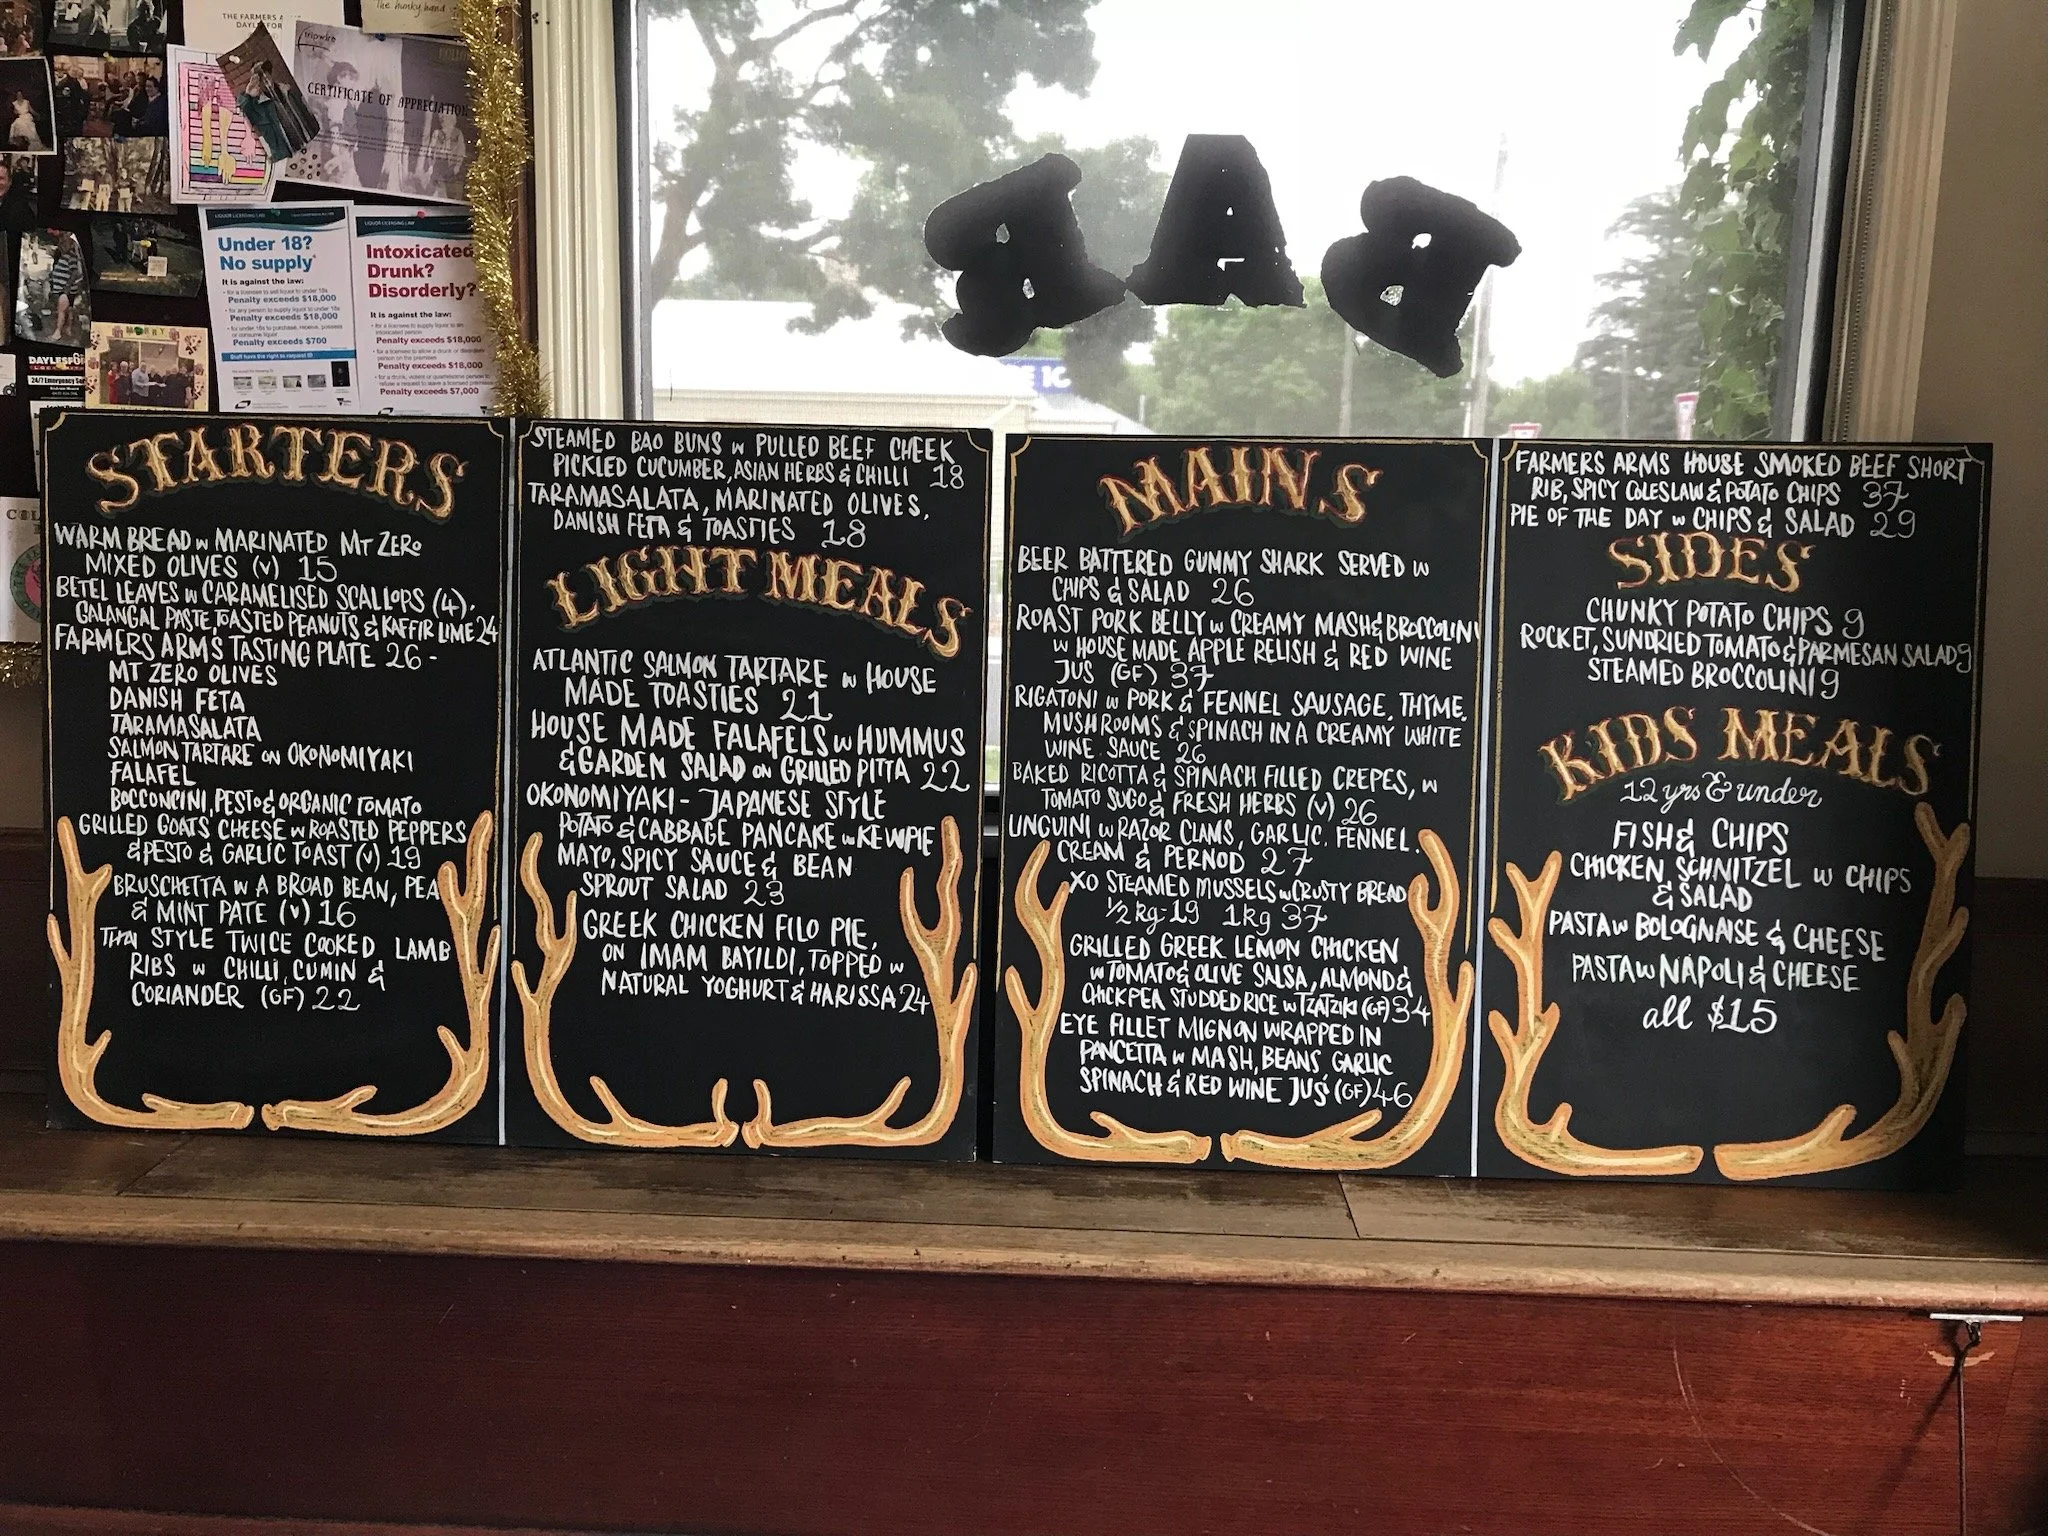 THE FARMERS A
DAYLESFOR
The hunky hand
tripwire
CERTIFICATE OF APPRECIATION
LIQUOR LICENSING LAW
Under 18?
No supply
It is against the law:
Penalty exceeds $18,000
• for any person to supply liquor to under 18s
Penalty exceeds $18,000
Penalty exceeds $700
LIQUOR LICENSING LAW
Intoxicated
Drunk?
Disorderly?
It is against the law:
Penalty exceeds $18,000
Penalty exceeds $18,000
Penalty exceeds $7,000
MERRY
DAYLESFO
24/7 Emergency
BAR
STARTERS
WARM BREAD w MARINATED MT ZERO
MIXED OLIVES (V) 15
BETEL LEAVES w CARAMELISED SCALLOPS (4).
GALANGAL PASTE, TOASTED PEANUTS & KAFFIR LIME 24
FARMERS ARMS TASTING PLATE 26 -
MT ZERO OLIVES
DANISH FETA
TARAMASALATA
SALMON TARTARE ON OKONOMIYAKI
FALAFEL
BOCCONCINI, PESTO & ORGANIC TOMATO
GRILLED GOATS CHEESE w ROASTED PEPPERS
& PESTO & GARLIC TOAST (V) 19
BRUSCHETTA w A BROAD BEAN, PEA
& MINT PATE (V) 16
THAI STYLE TWICE COOKED LAMB
RIBS w CHILLI, CUMIN &
CORIANDER (GF) 22
STEAMED BAO BUNS w PULLED BEEF CHEEK
PICKLED CUCUMBER, ASIAN HERBS & CHILLI 18
TARAMASALATA, MARINATED OLIVES,
DANISH FETA & TOASTIES 18
LIGHT MEALS
ATLANTIC SALMON TARTARE w HOUSE
MADE TOASTIES 21
HOUSE MADE FALAFELS w HUMMUS
& GARDEN SALAD ON GRILLED PITTA 22
OKONOMIYAKI - JAPANESE STYLE
POTATO & CABBAGE PANCAKE w KEWPIE
MAYO, SPICY SAUCE & BEAN
SPROUT SALAD 23
GREEK CHICKEN FILO PIE,
ON IMAM BAYILDI, TOPPED w
NATURAL YOGHURT & HARISSA 24
MAINS
BEER BATTERED GUMMY SHARK SERVED w
CHIPS & SALAD 26
ROAST PORK BELLY w CREAMY MASH & BROCCOLINI
w HOUSE MADE APPLE RELISH & RED WINE
JUS (GF) 37
RIGATONI w PORK & FENNEL SAUSAGE, THYME,
MUSHROOMS & SPINACH IN A CREAMY WHITE
WINE SAUCE 26
BAKED RICOTTA & SPINACH FILLED CREPES, w
TOMATO SUGO & FRESH HERBS (V) 26
LINGUINI w RAZOR CLAMS, GARLIC, FENNEL,
CREAM & PERNOD 27
XO STEAMED MUSSELS w CRUSTY BREAD
1/2 kg-19 1kg 37
GRILLED GREEK LEMON CHICKEN
w TOMATO & OLIVE SALSA, ALMOND &
CHICKPEA STUDDED RICE w TZATZIKI (GF) 34
EYE FILLET MIGNON WRAPPED IN
PANCETTA w MASH, BEANS GARLIC
SPINACH & RED WINE JUS (GF) 46
FARMERS ARMS HOUSE SMOKED BEEF SHORT
RIB, SPICY COLESLAW & POTATO CHIPS 37
PIE OF THE DAY w CHIPS & SALAD 29
SIDES
CHUNKY POTATO CHIPS 9
ROCKET, SUNDRIED TOMATO & PARMESAN SALAD 9
STEAMED BROCCOLINI 9
KIDS MEALS
12 yrs & under
FISH & CHIPS
CHICKEN SCHNITZEL w CHIPS
& SALAD
PASTA w BOLOGNAISE & CHEESE
PASTA w NAPOLI & CHEESE
all $15